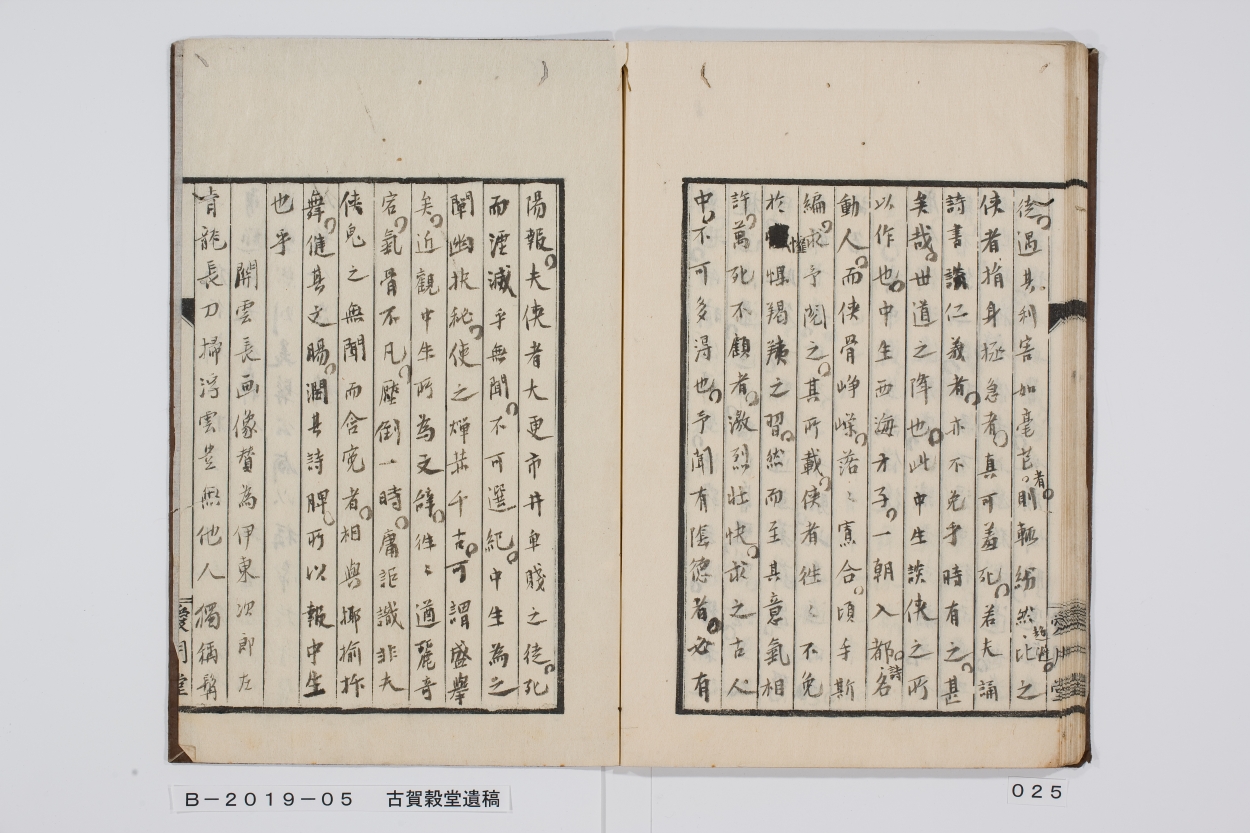 徒遇其利害如毫芒者則輙紛然比之
侠者捐身拯急者真可羞死若夫誦
詩書談仁義者亦不免乎時有之甚
矣哉世道之降也此中生談侠之所
以作也中生西海才子一朝入都詩名
動人而侠骨崢嶸落々寡合頃手斯
編求予閲之其所載侠者往々不免
於懼惧羯羠之習然而至其意氣相
許萬死不顧者激烈壮快求之古人
中不可多得也予聞有陰徳者必有
陽報夫侠者大更市井卑賤之徒死
而湮滅乎無聞不可選紀中生為之
闡幽抉秘使之燀赫千古可謂盛擧
矣近觀中生所為文辞往々遒麗奇
宕氣骨不凡壓倒一時庸詎識非夫
侠鬼之無聞而含寃者相與揶揄抃
舞健其文腸潤其詩脾所以報中生
也乎
關雲長画像賛為伊東次郎左
青龍長刀掃浮雲豈無他人獨稱髯
愛月堂
B-2019-05 古賀穀堂遺稿
025